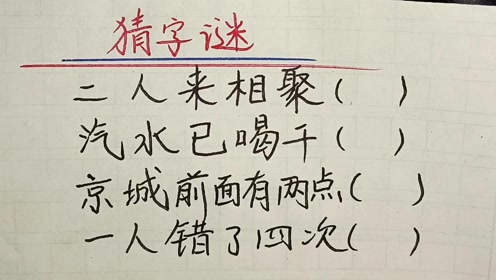 猜字谜
二人来相聚( )
汽水已喝干( )
京城前面有两点( )
一人错了四次( )